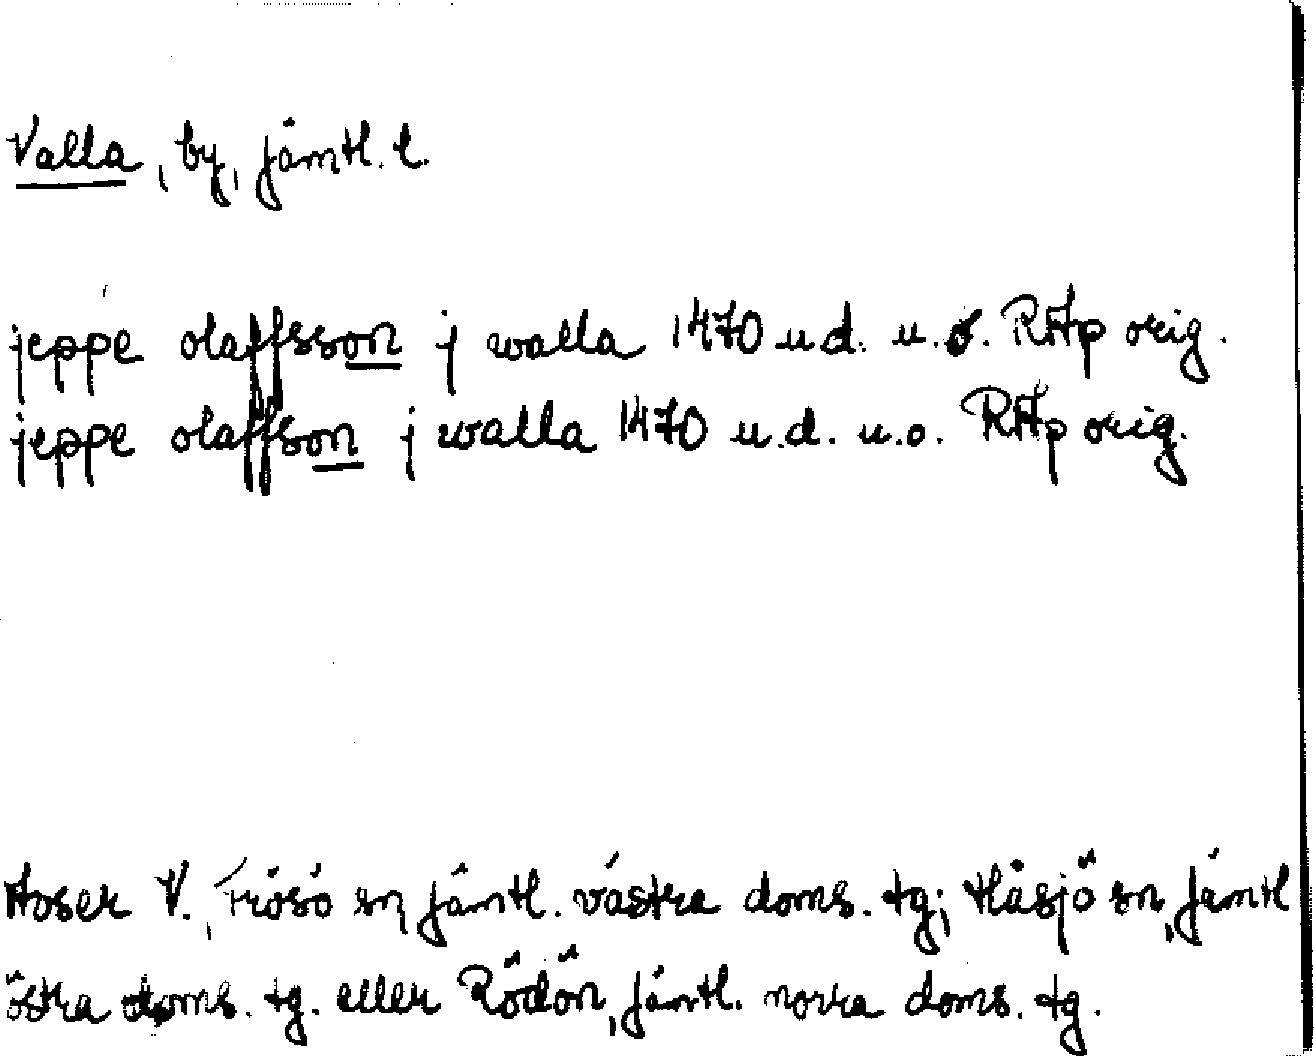 Valla, by, jämtl. l.
jeppe olaffsson j walla 1470 u.d. u.o. RAp orig.
jeppe olaffson j walla 1470 u.d. u.o. RAp orig.
V., Frösö sn, jämtl. västra doms. tg; Håsjö sn, jämtl
östra doms. tg. eller Rödön, jämtl. norra doms. tg.